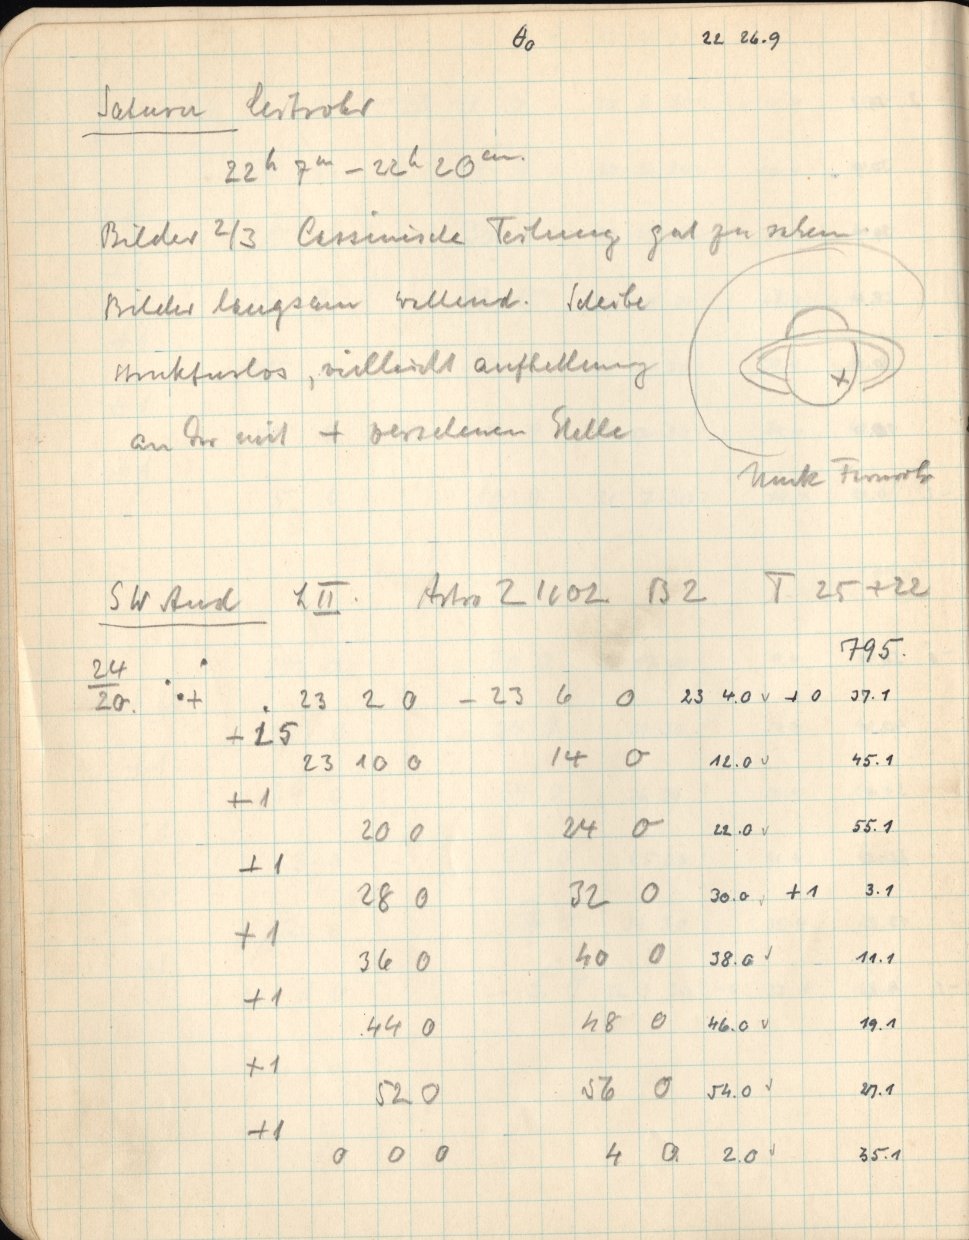 θ₀ 22 26.9
Saturn Leitrohr
22ʰ 7ᵐ – 22ʰ 20ᵐ.
Bilder 2/3 Cassinische Teilung gut zu sehen.
Bilder langsam wallend. Scheibe
strukturlos, vielleicht aufhellung
an der mit + versehenen Stelle
Umk Fernrohr
SW And L II. Astro Z 1102 B 2 T 25 + 22
795.
24/20. + 23 2 0 – 23 6 0 23 4.0 v + 0 37.1
+15
23 10 0 14 0 12.0 v 45.1
+1
20 0 24 0 22.0 v 55.1
+1
28 0 32 0 30.0 v +1 3.1
+1
36 0 40 0 38.0 v 11.1
+1
44 0 48 0 46.0 v 19.1
+1
52 0 56 0 54.0 v 27.1
+1
0 0 0 4 0 2.0 v 35.1